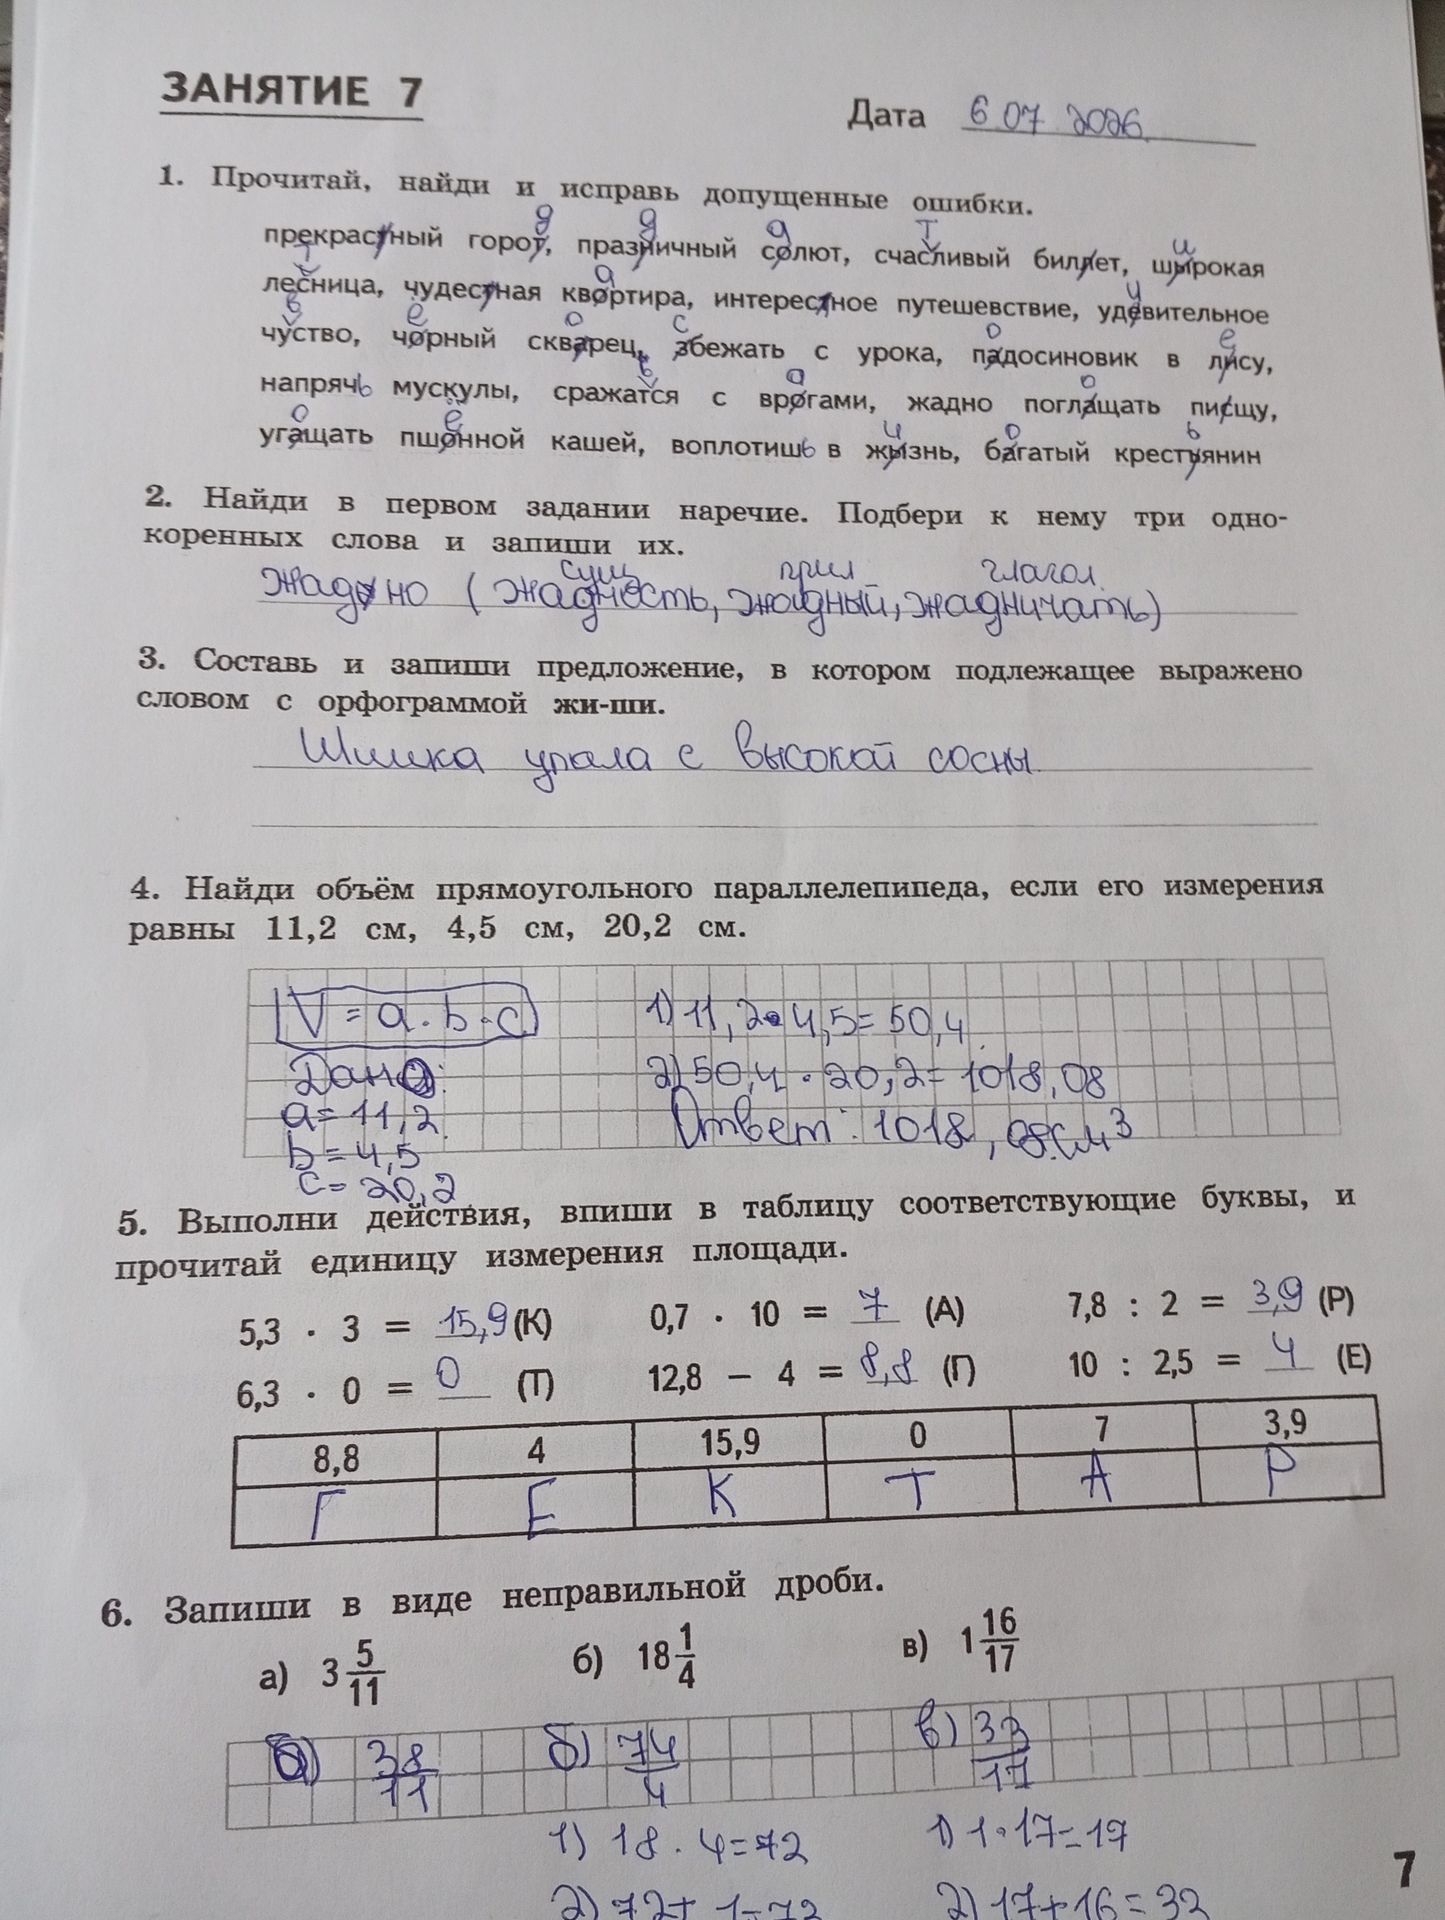 ЗАНЯТИЕ 7
Дата 6 07 2026
1. Прочитай, найди и исправь допущенные ошибки.
д д а т и
прекрастный горот, празничный солют, счасливый биллет, шырокая
т а и
лесница, чудестная квортира, интерестное путешевствие, удевительное
в ё о с о е
чуство, чорный скварец, збежать с урока, падосиновик в лису,
ь а о
напрячь мускулы, сражатся с врогами, жадно поглащать писщу,
о ё и о ь
угащать пшонной кашей, воплотишь в жызнь, багатый крестъянин
2. Найди в первом задании наречие. Подбери к нему три одно-
коренных слова и запиши их.
сущ прил глагол
жадно (жадность, жадный, жадничать)
3. Составь и запиши предложение, в котором подлежащее выражено
словом с орфограммой жи-ши.
Шишка упала с высокой сосны
4. Найди объём прямоугольного параллелепипеда, если его измерения
равны 11,2 см, 4,5 см, 20,2 см.
V = a · b · c 1) 11,2 • 4,5 = 50,4
Дано: 2) 50,4 · 20,2 = 1018,08
a = 11,2 Ответ: 1018,08см³
b = 4,5
c = 20,2
5. Выполни действия, впиши в таблицу соответствующие буквы, и
прочитай единицу измерения площади.
5,3 · 3 = 15,9 (К) 0,7 · 10 = 7 (А) 7,8 : 2 = 3,9 (Р)
6,3 · 0 = 0 (Т) 12,8 − 4 = 8,8 (Г) 10 : 2,5 = 4 (Е)
8,8 4 15,9 0 7 3,9
Г Е К Т А Р
6. Запиши в виде неправильной дроби.
а) 3 5/11 б) 18 1/4 в) 1 16/17
а) 38/11 б) 74/4 в) 33/17
1) 18 · 4 = 72 1) 1 · 17 = 17
2) 72 + 1 = 73 2) 17 + 16 = 33
7